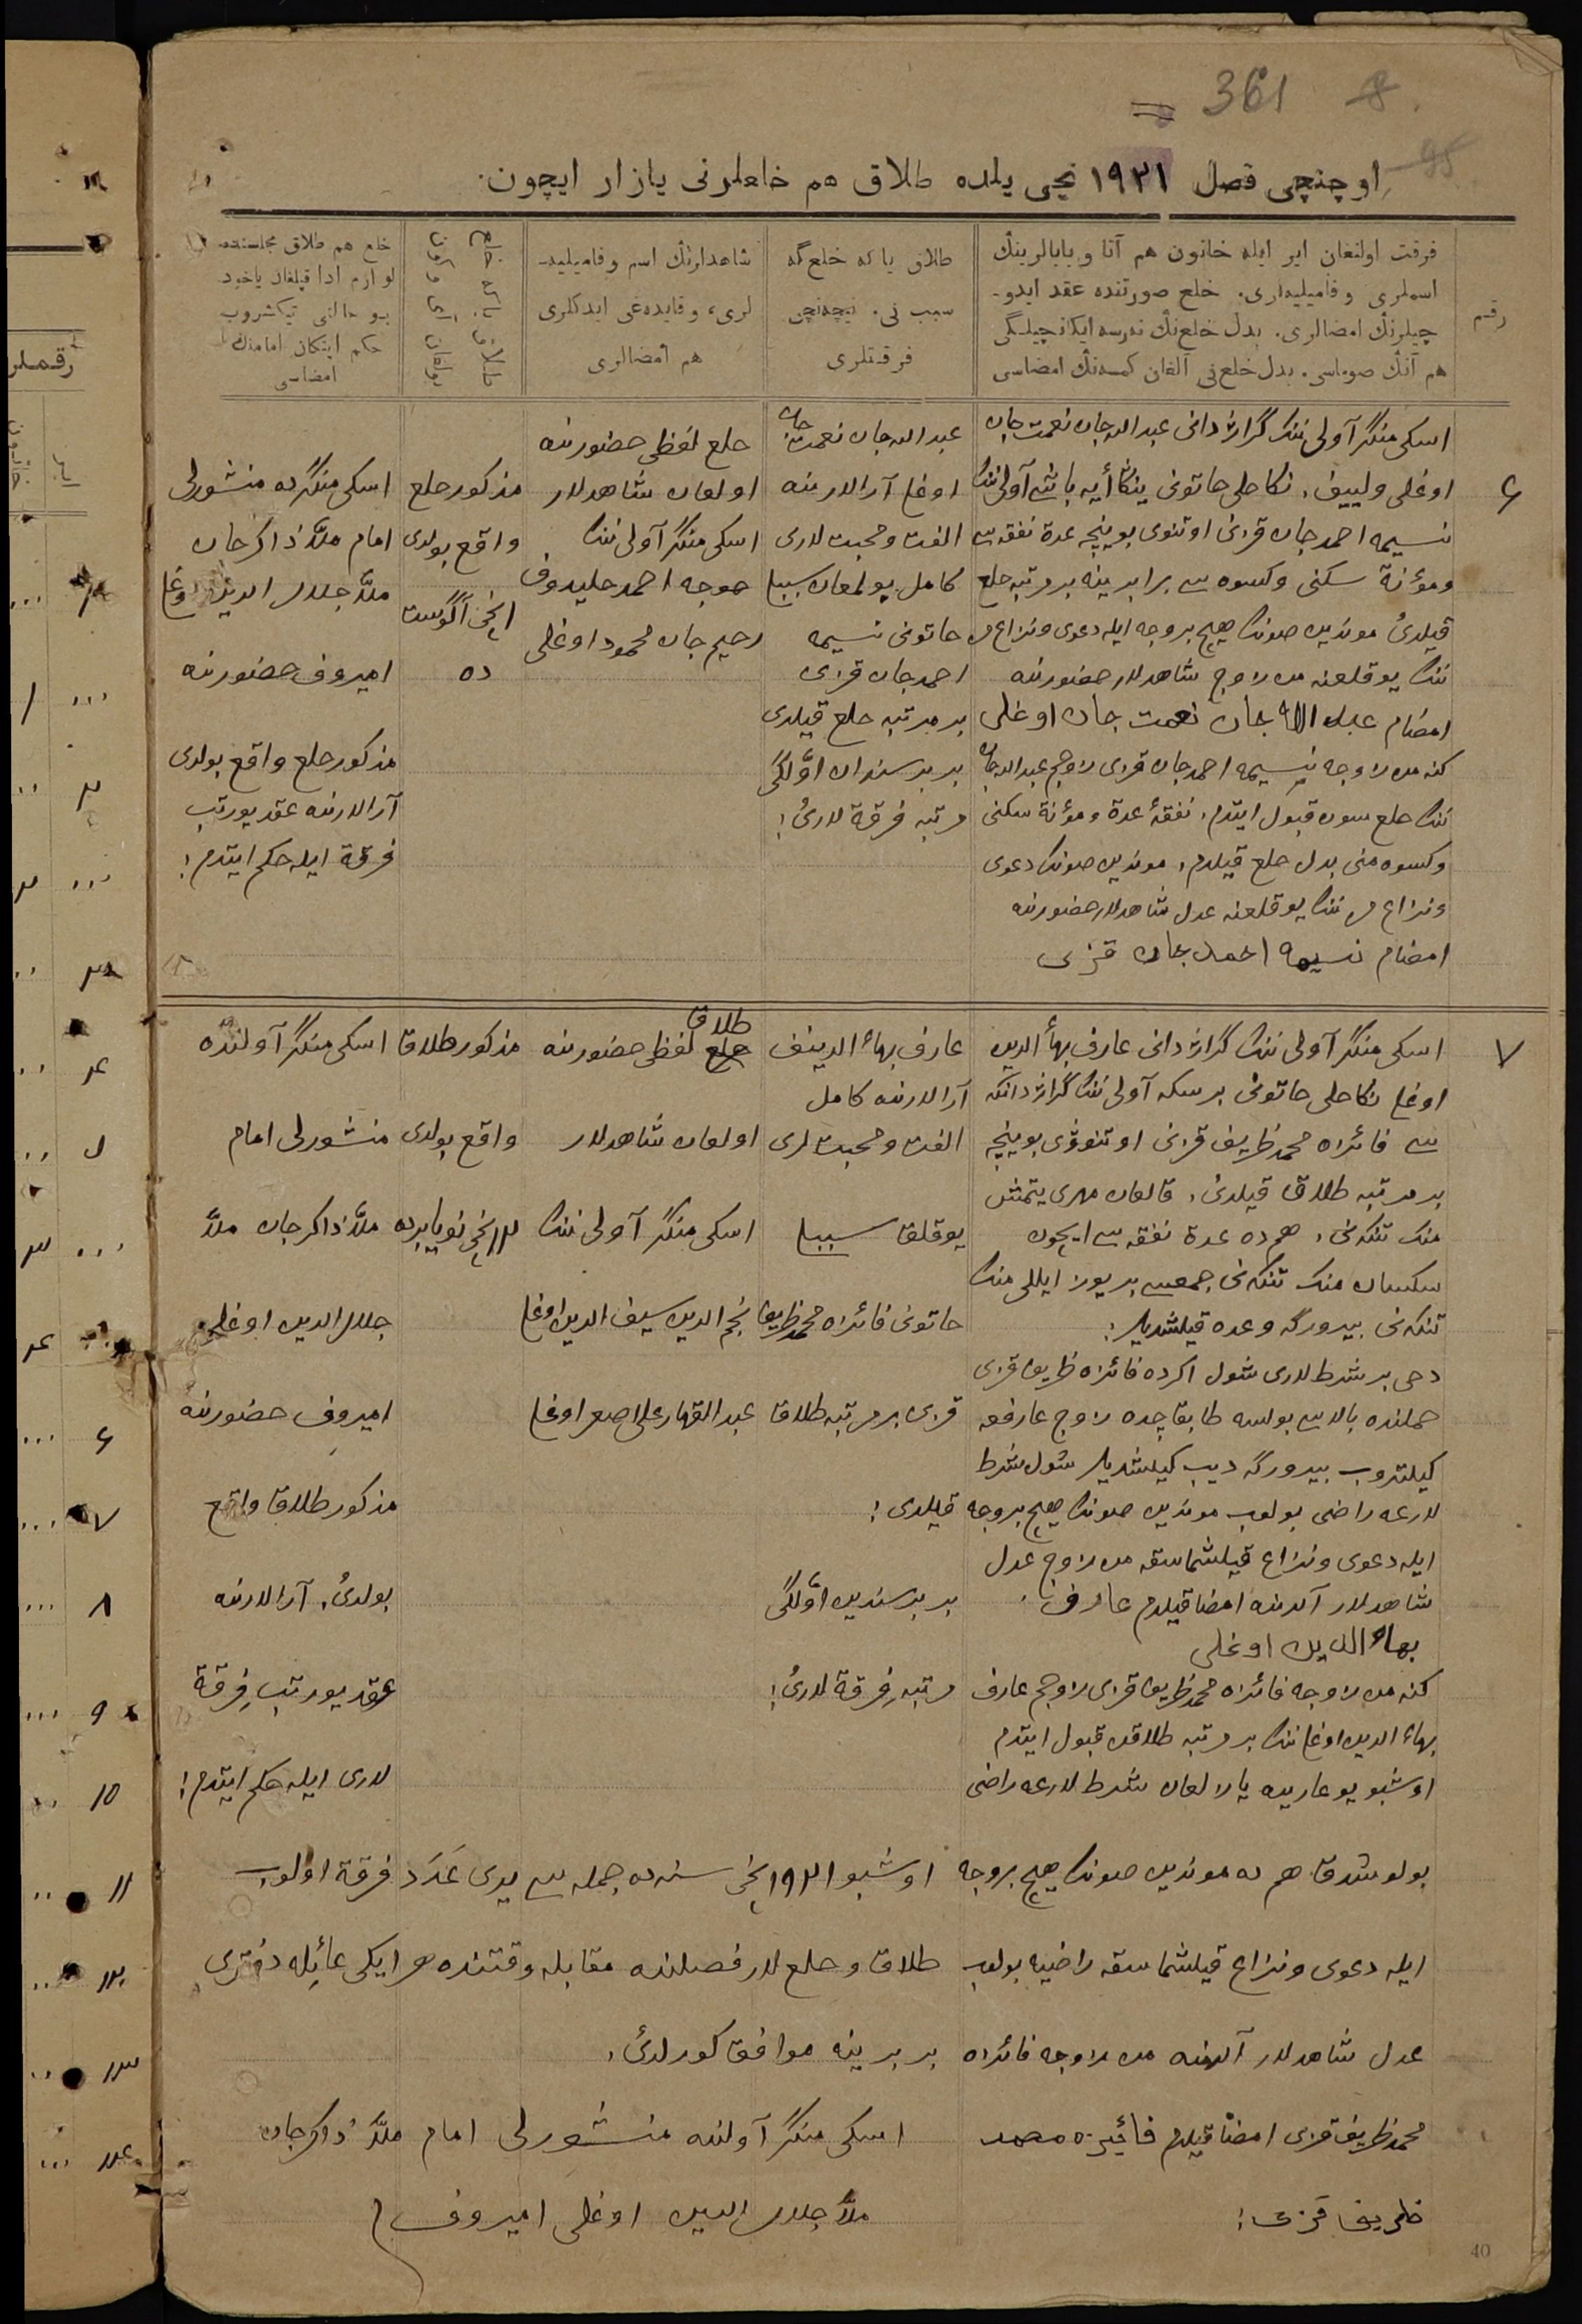 361 8
95
اوچنچی فصل ١٩٢١ نچی یلده طلاق هم خلعلرنی یازار ایچون.
رقم
فرقت اولنغان ایر ایله خاتون هم آتا و بابالرینڭ
اسملری و فامیلیه‌لری. خلع صورتنده عقد ایدو-
چیلرنڭ امضالری. بدل خلع‌نڭ نه‌رسه ایکانچیلیگی
هم آنڭ صوماسی. بدل خلع‌نی آلغان کمسه‌نڭ امضاسی
طلاق یا که خلع گه
سبب نی. نیچه‌نچی
فرقتلری
شاهدلرنڭ اسم و فامیلیه-
لری، و قایده‌غی ایدکلری
هم امضالری
خلع یا که طلاق
نڭ آی و کون
خلع هم طلاق مجلسنده
لوازم ادا قیلغان یاخود
بو حالنی تیکشروب
حکم ایتکان امامنڭ
امضاسی
٦
اسکی منگر آولی ننڭ گراژدانی عبدالله جان نعمت جان
اوغلی ولییف، نکاحلی خاتونی یڭا آیه باشی آولی ننڭ
نسیمه احمدجان قزینی اوتنوی بوینچه عدة نفقه سی
و مؤنة سکنی و کسوه سی برابرینه بر مرتبه خلع
قیلدیُ موندین صونڭ هیچ بر وجه ایله دعوی و نزاعم
ننڭ یوقلغنه من زاوج شاهدلار حضورنده
امضام عبد الله جان نعمت جان اوغلی
کنه من زاوجه نسیمه احمدجان قزی زاوجم عبدالله جان
ننڭ خلع سون قبول ایتدم، نفقهٔ عدة و مؤنة سکنی
و کسوه منی بدل خلع قیلدم، موندین صونڭ دعوی
و نزاعم ننڭ یوقلغنه عدل شاهدلار حضورنده
امضام نسیمه احمد جان قزی
عبدالله جان نعمت جان
اوغلی آرالارنده
الفت و محبت لاری
کامل بولمغان سببلی
خاتونی نسیمه
احمدجان قزی
بر مرتبه خلع قیلدی
بر برسندان اوّلگی
مرتبه فرقة لاریُ!
خلع لفظی حضورنده
اولغان شاهدلار
اسکی منگر آولی ننڭ
خوجه احمد حلیدوف
رحیم جان محمود اوغلی
مذکور خلع
واقع بولدی
١نچی آگوست
ده
اسکی منگرده منشورلی
امام ملّا ذاکرجان
ملّا جلال الدین اوغلی
امیروف حضورنده
مذکور خلع واقع بولدی
آرالارنده عقد یورتب
فرقة ایله حکم ایتدم!
٧
اسکی منگر آولی ننڭ گراژدانی عارف بهاء الدین
اوغلی نکاحلی خاتونی برسکه آولی ننڭ گراژدانکه
سی فائزه محمد ظریف قزینی اوتنووی بوینچه
بر مرتبه طلاق قیلدیُ، قالغان مهری یتمش
منک تنکه‌نی، هم ده عدة نفقه سی ایچون
سکسان منک تنکه‌نی جمعسی بر یوز ایللی منک
تنکه‌نی بیرورگه وعده قیلشدیلر:
دخی بر شرط لاری شول اکرده فائزه ظریف قزی
حملنده بالاسی بولسه طابقاچده زاوج عارفغه
کیلتروب بیرورگه دیب کیلشدیلر شول شرط
لارغه راضی بولوب موندین صونڭ هیچ بر وجه
ایله دعوی و نزاع قیلشماسقه من زاوج عدل
شاهدلار آلدنده امضا قیلدم عارف
بهاء الدین اوغلی
کنه من زاوجه فائزه محمد ظریف قزی زاوجم عارف
بهاء الدین اوغلی ننڭ بر مرتبه طلاقن قبول ایتدم
اوشبو یوغاریده یازلغان شرط لارغه راضی
بولوشدق هم ده موندین صونڭ هیچ بر وجه
ایله دعوی و نزاع قیلشماسقه راضیه بولوب
عدل شاهدلار آلدنده من زاوجه فائزه
محمد ظریف قزی امضا قیلدم فائیزه محمد
ظریف قزی!
عارف بهاء الدینف
آرالارنده کامل
الفت و محبت لری
یوقلق سببلی
خاتونی فائزه محمد ظریف
قزی بر مرتبه طلاق
قیلدی!
بر برسندین اوّلگی
مرتبه فرقة لاریُ!
طلاق
خلع لفظی حضورنده
اولغان شاهدلار
اسکی منگر آولی ننڭ
نجم الدین سیف الدین اوغلی
عبدالقهار علی اصغر اوغلی
مذکور طلاق
واقع بولدی
١٢نچی نویابرده
اسکی منگر آولنده
منشورلی امام
ملّا ذاکرجان ملّا
جلال الدین اوغلی
امیروف حضورنده
مذکور طلاق واقع
بولدیُ، آرالارنده
عقد یورتب فرقة
لاری ایله حکم ایتدم!
اوشبو ١٩٢١نچی سنه ده جمله سی یدی عَدَد فرقة اولوب
طلاق و خلع لار فصلنده مقابله وقتنده هر ایکی عائله دفتری
بر برینه موافق کورلدیُ،
اسکی منگر آولنده منشورلی امام ملّا ذاکرجان
ملّا جلال الدین اوغلی امیروف
40
رقملر
١
٢
٣
٤
٦
٧
٨
٩
١٠
١١
١٢
١٣
١٤